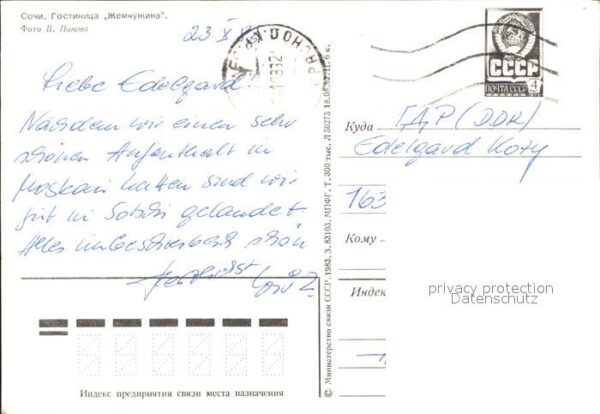 Сочи. Гостиница „Жемчужина".
Фото В. Панова
23 X
Liebe Edelgard
Nachdem wir einen sehr
schönen Aufenthalt in
Moskau hatten sind wir
gut in Sotschi gelandet
Alles unbeschreiblich schön
© Министерство связи СССР, 1983. З. 83103. МПФГ. Т. 300 тыс. Л 50275 18.08.82. Ц. 6 к.
СССР
ПОЧТА СССР 4
Куда ГДР (DDR)
Edelgard
163
Кому
Индекс
privacy protection
Datenschutz
Индекс предприятия связи места назначения